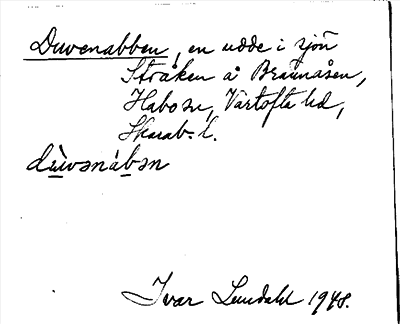 Duvenabben, en udde i sjön
Stråken å Brännåsen,
Habo sn, Vartofta hd,
Skarab. l.
dùwənábən
Ivar Lundahl 1948.